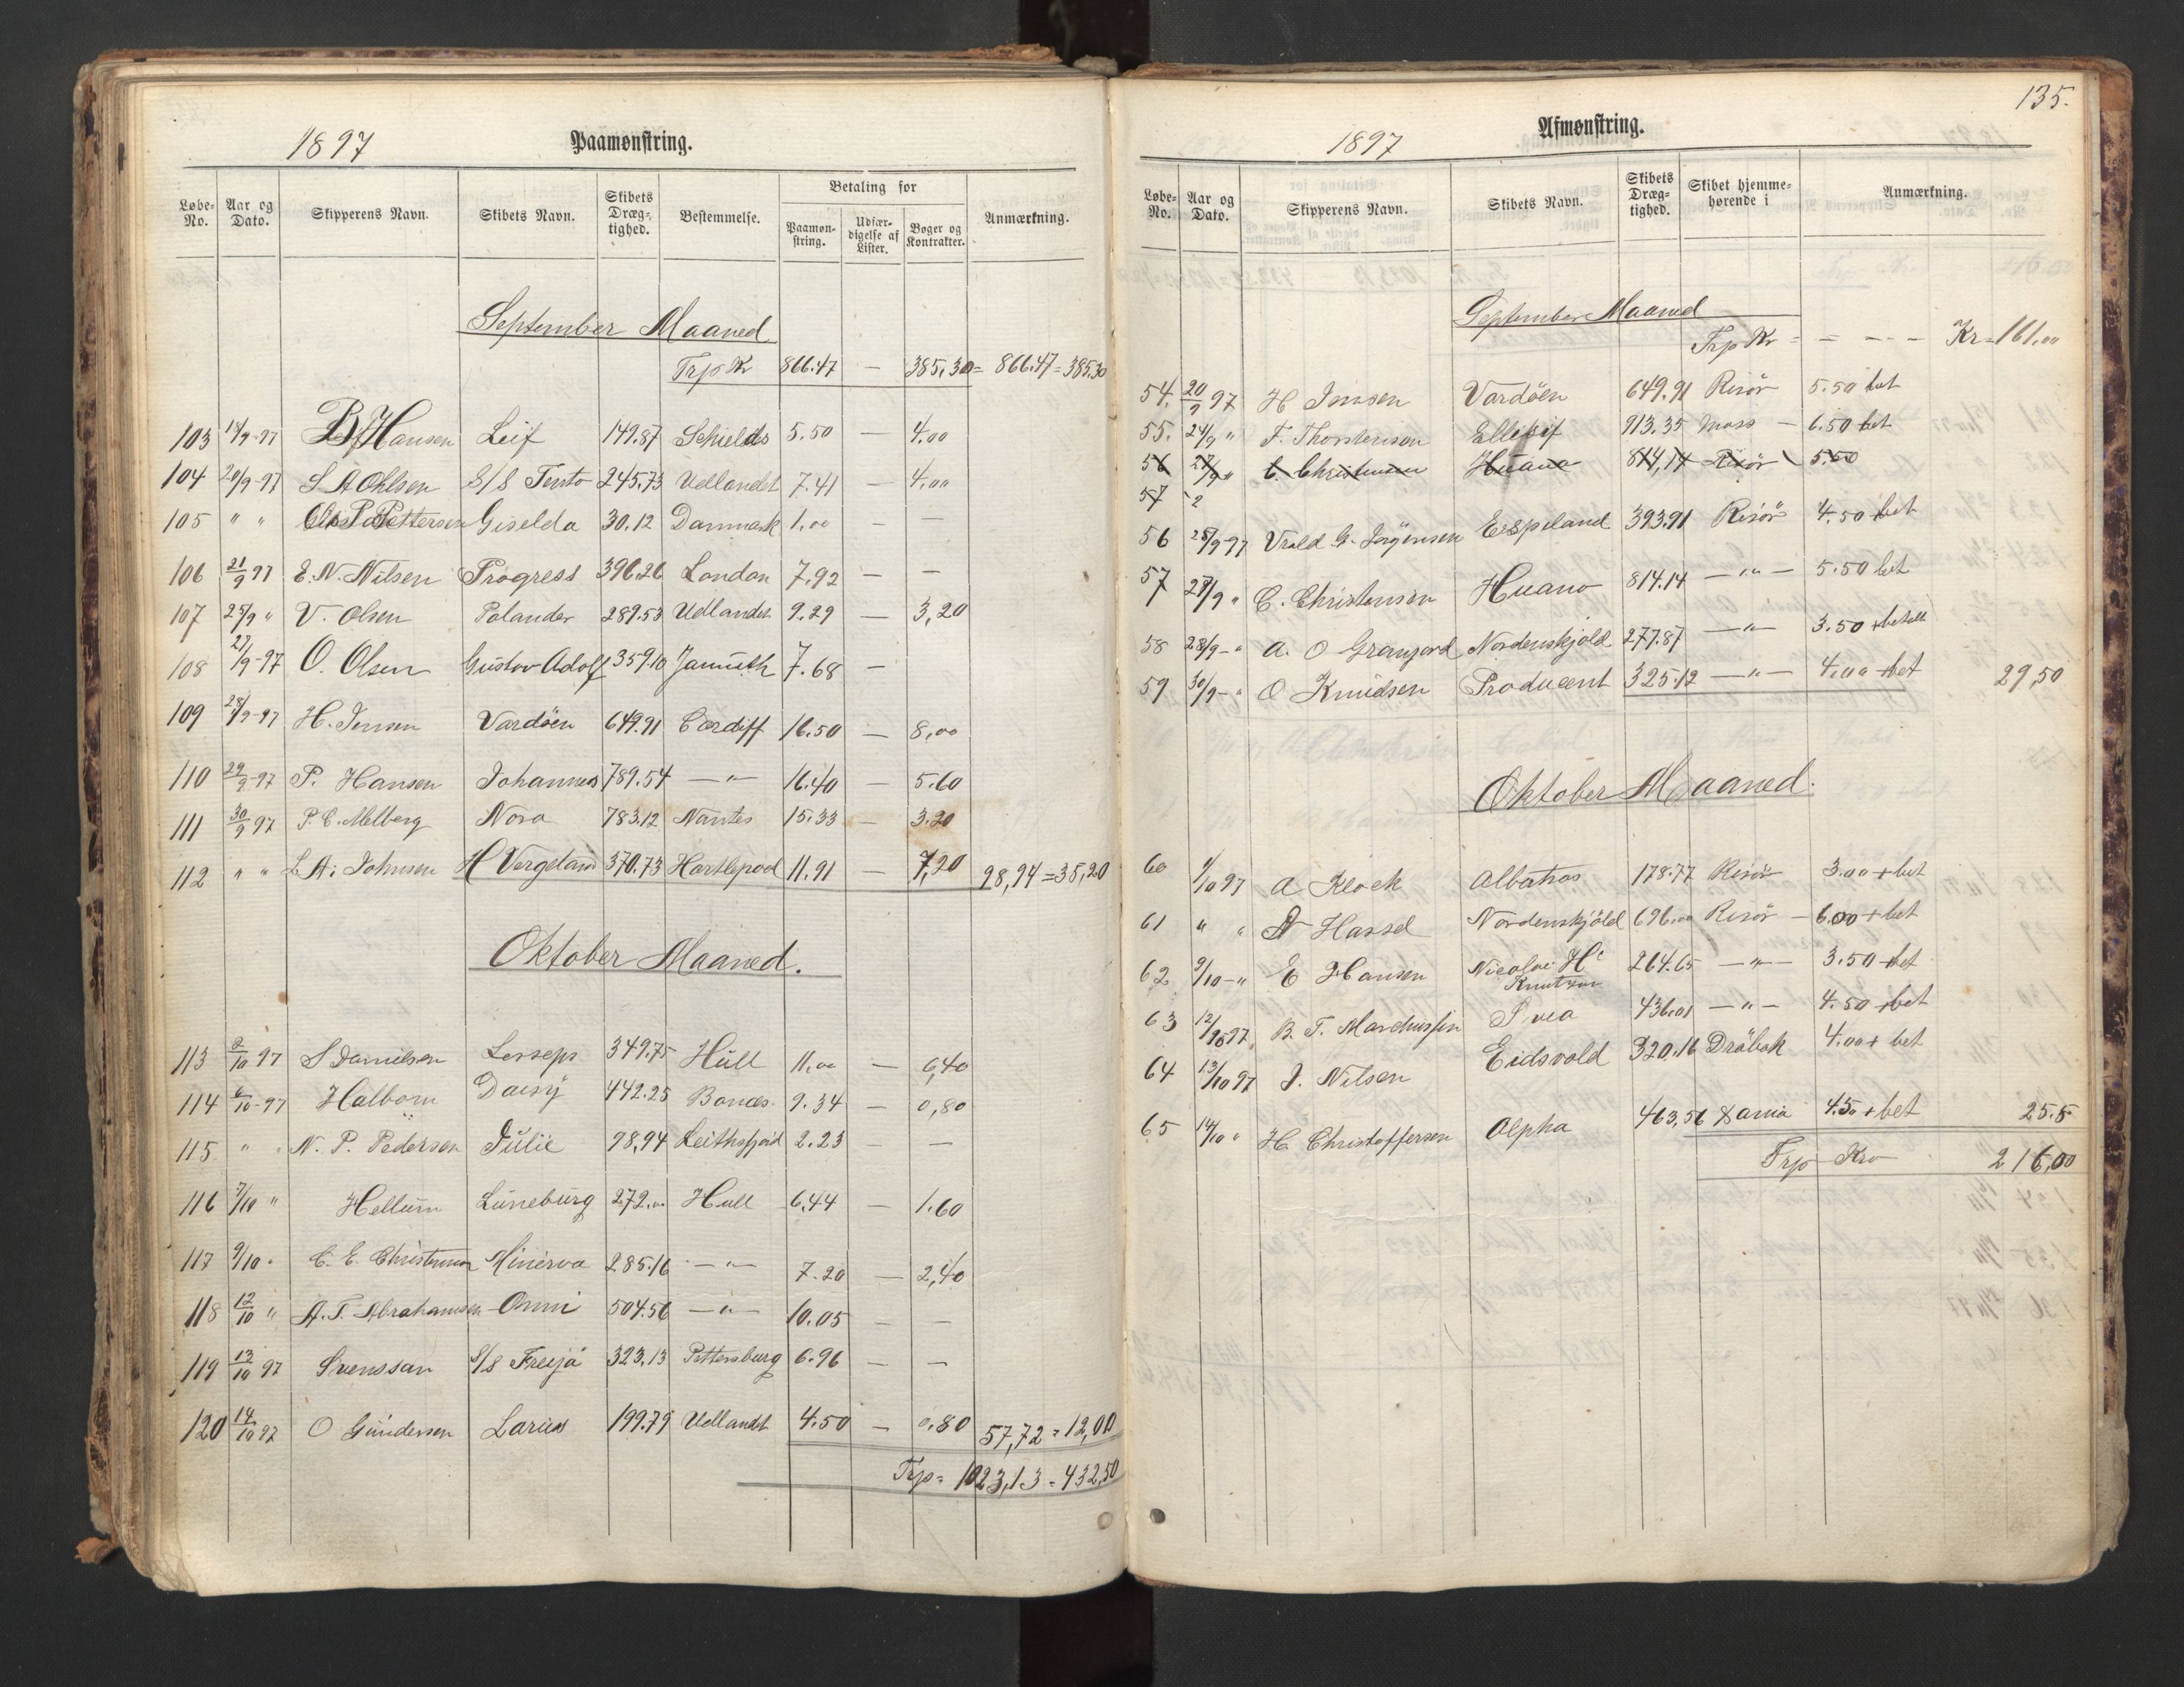 1897 Paamønstring.
Løbe-No. Aar og Dato. Skipperens Navn. Skibets Navn. Skibets Dræg-tighed. Bestemmelse. Betaling for Paamøn-string. Udfær-digelse af Lister. Bøger og Kontrakter. Anmærkning.
September Maaned
Trp Kr 866.47 — 385,30 = 866.47 = 385.30
103 18/9-97 B Hansen Leif 149.87 Schields 5.50 — 4.00
104 20/9-97 S A Ohlsen S/S Tento 245.73 Udlandet 7.41 — 4.00
105 " " Pettersen Giselda 30.12 Danmark 1.00 — —
106 21/9 97 E. N. Nilsen Progress 396.26 London 7.92 — —
107 25/9 " V. Olsen Polander 289.53 Udlandet 9.29 — 3,20
108 27/9-97 O. Olsen Gustav Adolf 359.10 Jarmuth 7.68 —
109 28/9-97 H. Jensen Vardöen 649.91 Cardiff 16.50 — 8,00
110 29/9-97 P. Hansen Johannes 789.54 —"— 16.40 — 5.60
111 30/9 97 P. C. Melberg Nora 783.12 Nantes 15.33 — 3.20
112 " " L. A. Johnsen H Vergeland 370.73 Hartlepool 11.91 — 7,20 98,94 = 35,20
Oktober Maaned.
113 2/10 97 S Danielsen Lesseps 349.75 Hull 11.00 — 6,40
114 6/10-97 Halborn Daisy 442.25 Bonæs 9.34 — 0,80
115 " " N. P. Pedersen Julie 98,94 Leithsfjord 2.23 — —
116 7/10 " Hellum Lüneburg 272.00 Hull 6.44 — 1.60
117 9/10 " C. E. Christensen Minerva 285.16 —"— 7.20 — 2,40
118 12/10 " A. T. Abrahamsen Onni 504.56 —"— 10.05 — —
119 13/10 97 Svenssan S/S Freija 323,13 Pettersburg 6.96 — —
120 14/10 97 O Gundersen Larius 199.79 Udlandet 4.50 — 0.80 57,72 = 12,00
Trp = 1023,13 = 432,50
135.
1897 Afmønstring.
Løbe-No. Aar og Dato. Skipperens Navn. Skibets Navn. Skibets Dræg-tighed. Skibet hjemme-hørende i Anmærkning.
September Maaned
Trp Kr = — — — Kr = 161,00
54. 20/9 97 H Jensen Vardöen 649.91 Risör 5.50 bet
55. 24/9 " F. Thorstensen Ellisif 913.35 Moss — 6.50 bet
56 27/9 " C. Christensen Huano 814,14 Risör 5.50
57
56 28/9-97 Vrold G. Jörgensen Espeland 393.91 Risör 4.50 bet
57 28/9 " C. Christensen Huano 814.14 —"— 5.50 bet
58 28/9-" A. O Granjord Nordenskjold 277.87 —"— 3.50 + betalt
59 30/9-" O Knudsen Producent 325.12 —"— 4.00 + bet 29,50
Oktober Maaned.
60 1/10 97 A Klock Albatros 178.77 Risör 3.00 + bet
61 " " N Hassel Nordenskjöld 696.00 Risör — 6.00 + bet
62 9/10-" E Hansen Nicolai H. Knutzon 264.65 —"— 3.50 + bet
63 12/10 97 B. T. Marchussen Svea 436.01 —"— 4.50 + bet
64 13/10 97 J. Nilsen Eidsvold 320.16 Dröbak 4.00 + bet
65 14/10 " H. Christoffersen Alpha 463,56 Xania 4.50 + bet 25.5
Trp Kro 216,00